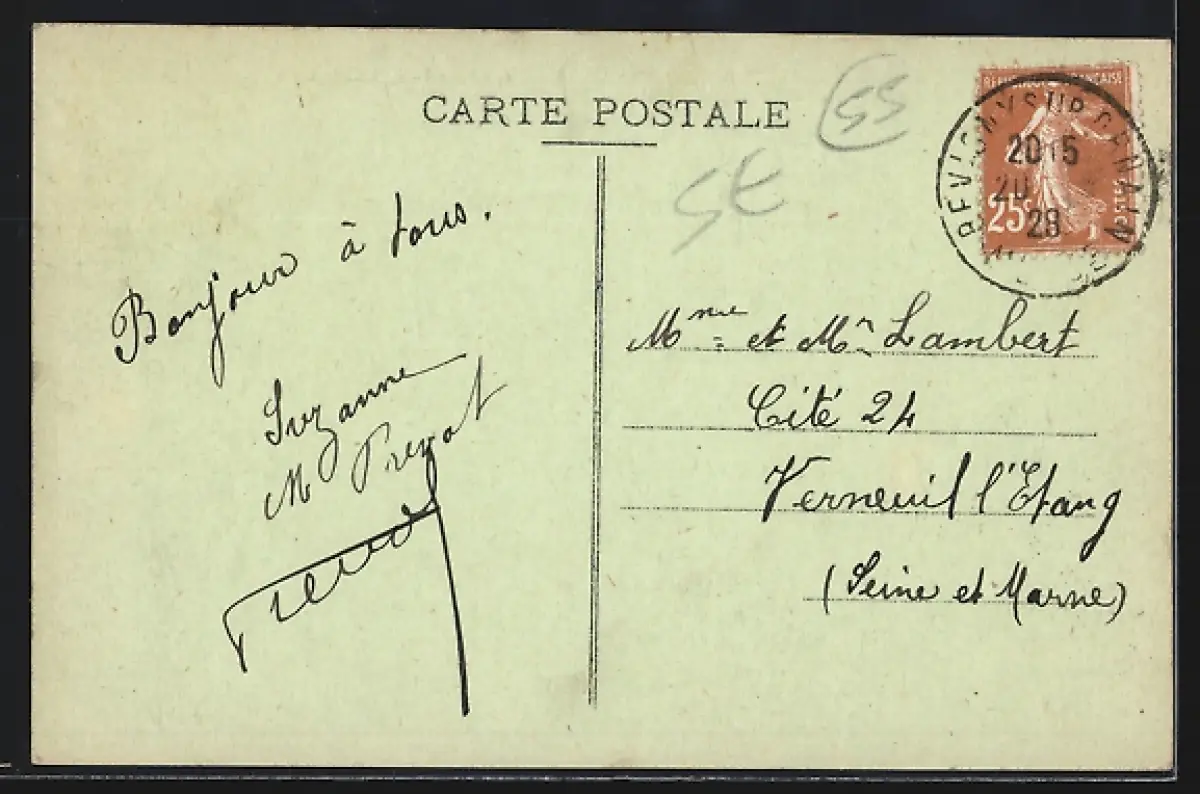 CARTE POSTALE
55
SE
RÉPUBLIQUE FRANÇAISE
25c
POSTES
REVIGNY SUR ORNAIN
20 15
20
28
Bonjour à tous.
Suzanne
M Prevot
Mme et Mr Lambert
Cité 24
Verneuil l'Etang
(Seine et Marne)